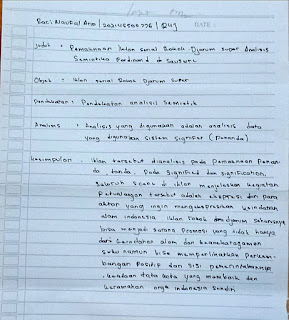 Bari Naufal Ario / 202146500776 / [R4]
DATE:
Judul : Pemaknaan Iklan serial Rokok Djarum super Analisis
Semiotika Ferdinand de Sausure
Objek : Iklan serial Rokok Djarum super
Pendekatan : Pendekatan analisis Semiotik
Analisis : Analisis yang digunakan adalah analisis data
yang digunakan sistem signifier (Penanda)
kesimpulan : iklan tersebut dianalisis pada Pemaknaan Penan
da tanda. pada Signified dan signification.
seluruh scene di iklan menjelaskan kegiatan
Petualangan tersebut adalah ekspresi dari para
aktor yang ingin mengekspresikan keindahan
alam indonesia. iklan rokok djarum super seharusnya
bisa menjadi sarana promosi yang tidak hanya
dari keindahan alam dan keanekaragaman
suku namun bisa memperlihatkan perkem
bangan Positif dari sisi pemerintahannya
, keadaan tata kota yang membaik dan
keramahan orang indonesia sendiri